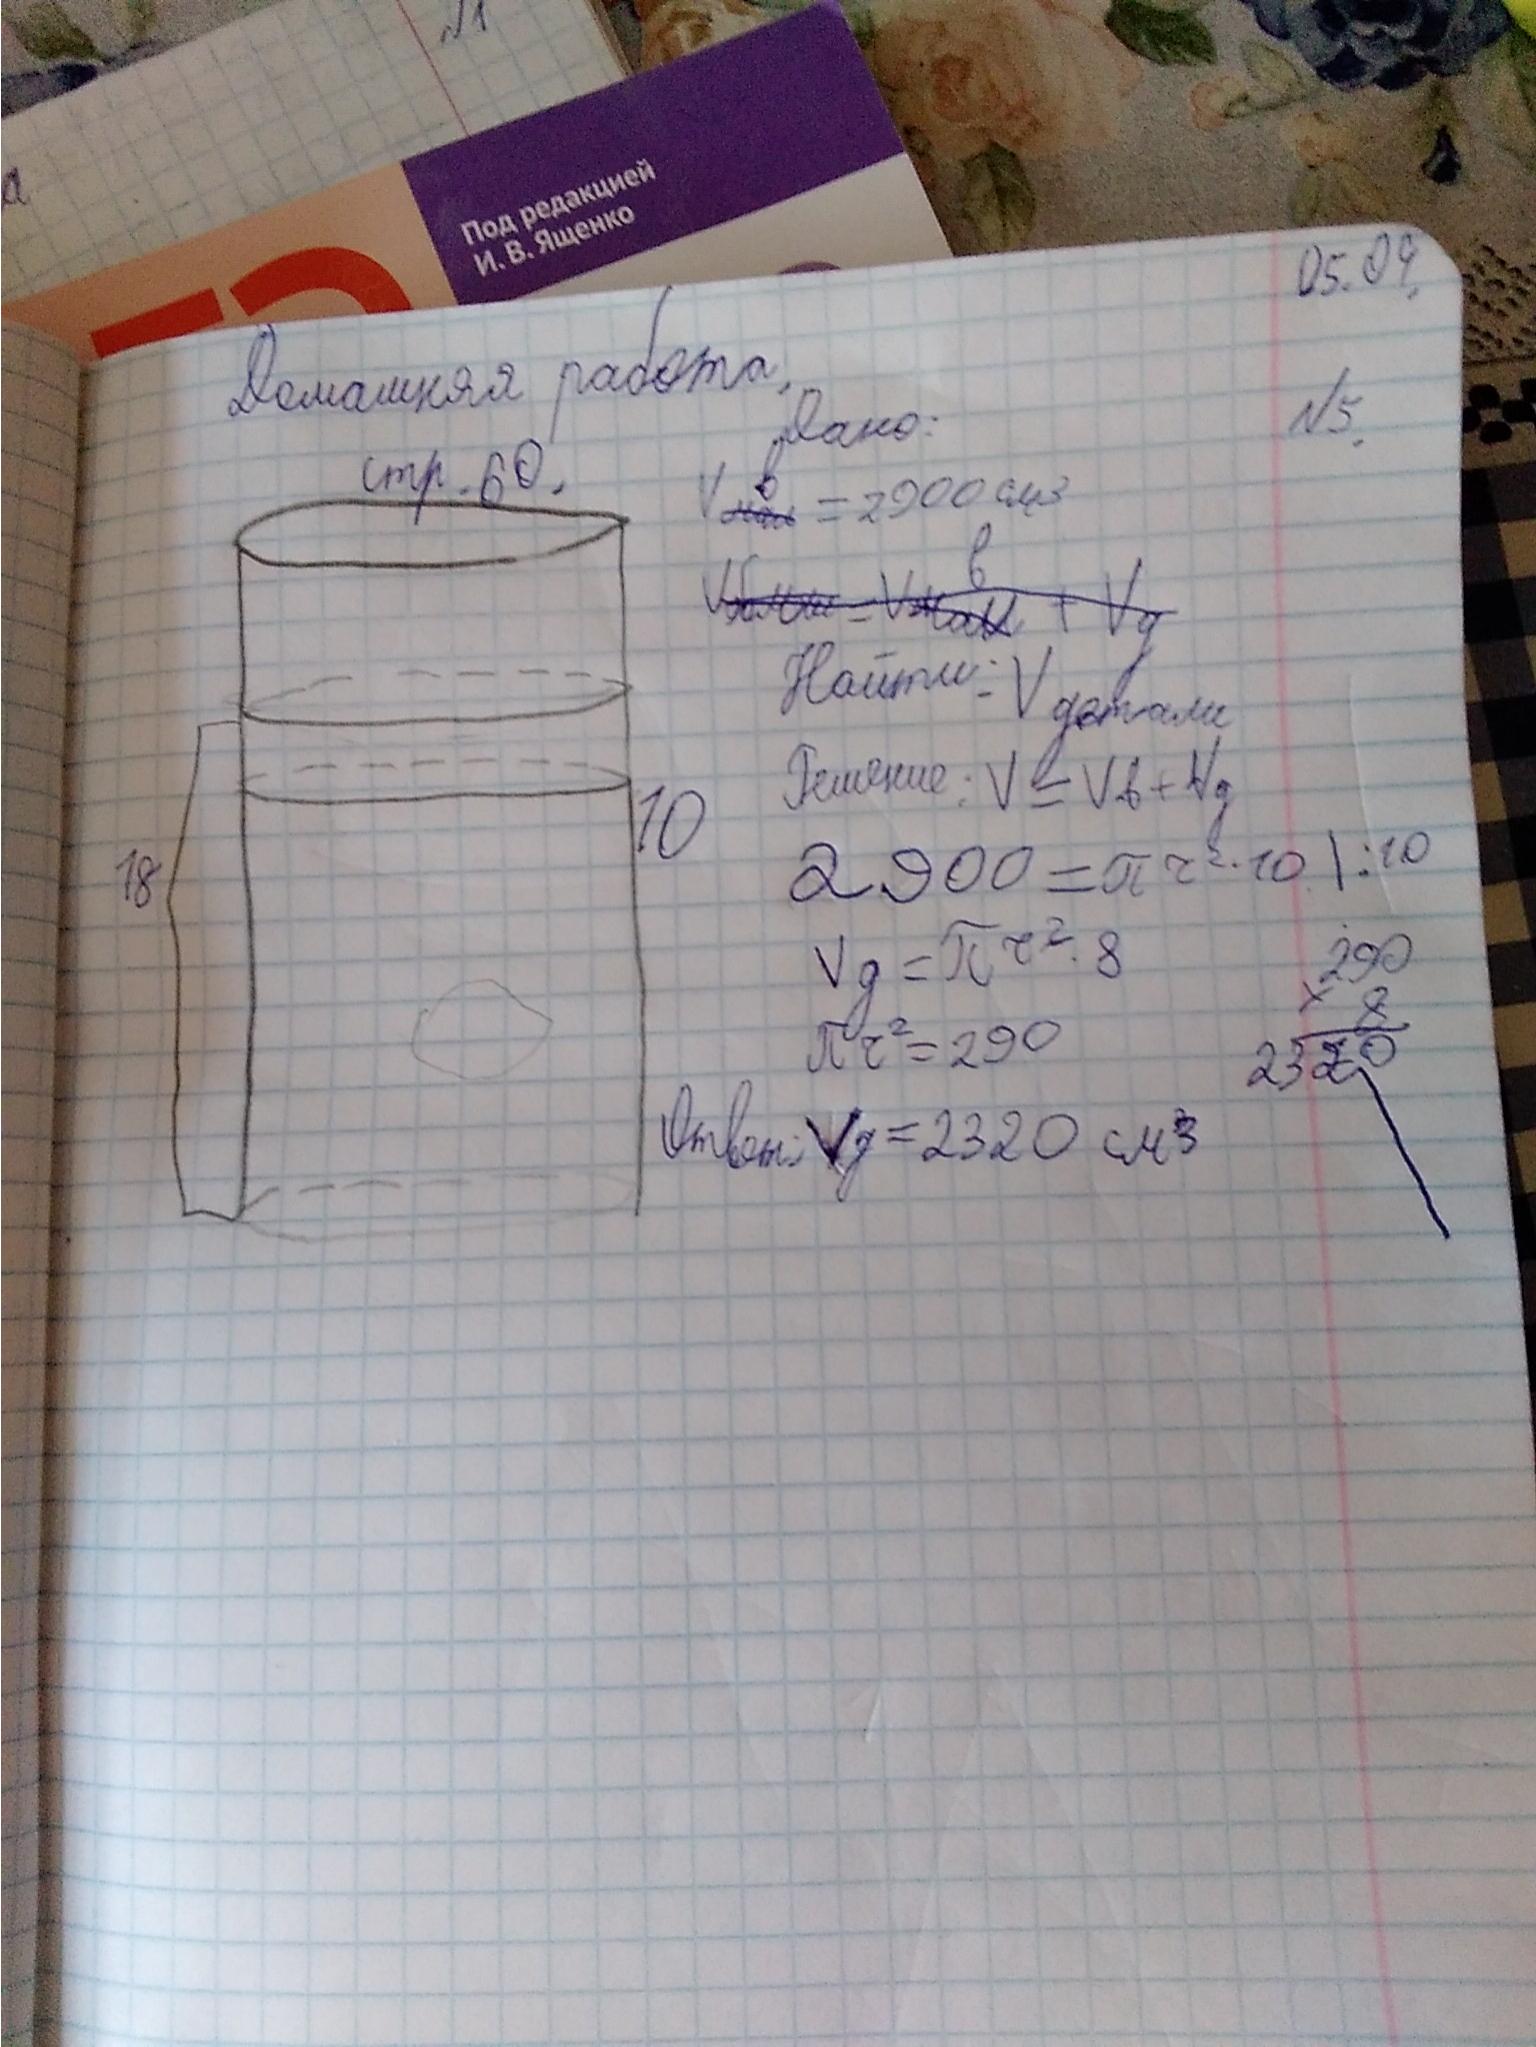 №1
а
Под редакцией
И. В. Ященко
05.04.
Домашняя работа.
стр. 60.
№5.
Дано:
Vв = 2900 см3
+ Vд
Найти: V детали
Решение: V = Vв + Vд
2900 = πr²·10 |:10
Vд = πr²·8
πr² = 290
290
× 8
2320
Ответ: Vд = 2320 см3
18
10